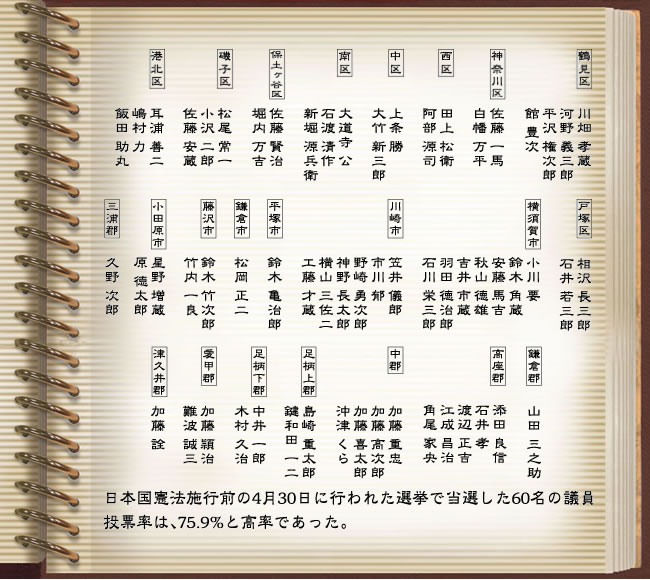 鶴見区
川畑 孝蔵
河野 義三郎
平沢 権次郎
館 豊次
神奈川区
佐藤 一馬
白幡 万平
西区
田上 松衛
阿部 源司
中区
上条 勝
大竹 新三郎
南区
大道寺 公
石渡 清作
新堀 源兵衛
保土ヶ谷区
佐藤 賢治
堀内 万吉
磯子区
松尾 常一
小沢 二郎
佐藤 安蔵
港北区
耳浦 善二
嶋村 力
飯田 助丸
戸塚区
相沢 長三郎
石井 若三郎
横須賀市
小川 要
鈴木 角蔵
安藤 馬吉
秋山 徳雄
吉井 市蔵
羽田 徳治郎
石川 栄三郎
川崎市
笠井 儀郎
市川 郁
野崎 勇次郎
神野 長太郎
横山 三佐二
工藤 才蔵
平塚市
鈴木 亀治郎
鎌倉市
松岡 正二
藤沢市
鈴木 竹次郎
竹内 一良
小田原市
星野 増蔵
原 徳太郎
三浦郡
久野 次郎
鎌倉郡
山田 三之助
高座郡
添田 良信
石井 孝
渡辺 正吉
江成 昌治
角尾 家央
中郡
加藤 重忠
加藤 高次郎
加藤 喜太郎
沖津 くら
足柄上郡
島崎 重太郎
鍵和田 一二
足柄下郡
中井 一郎
木村 久治
愛甲郡
加藤 穎治
難波 誠三
津久井郡
加藤 詮
日本国憲法施行前の4月30日に行われた選挙で当選した60名の議員
投票率は、75.9%と高率であった。